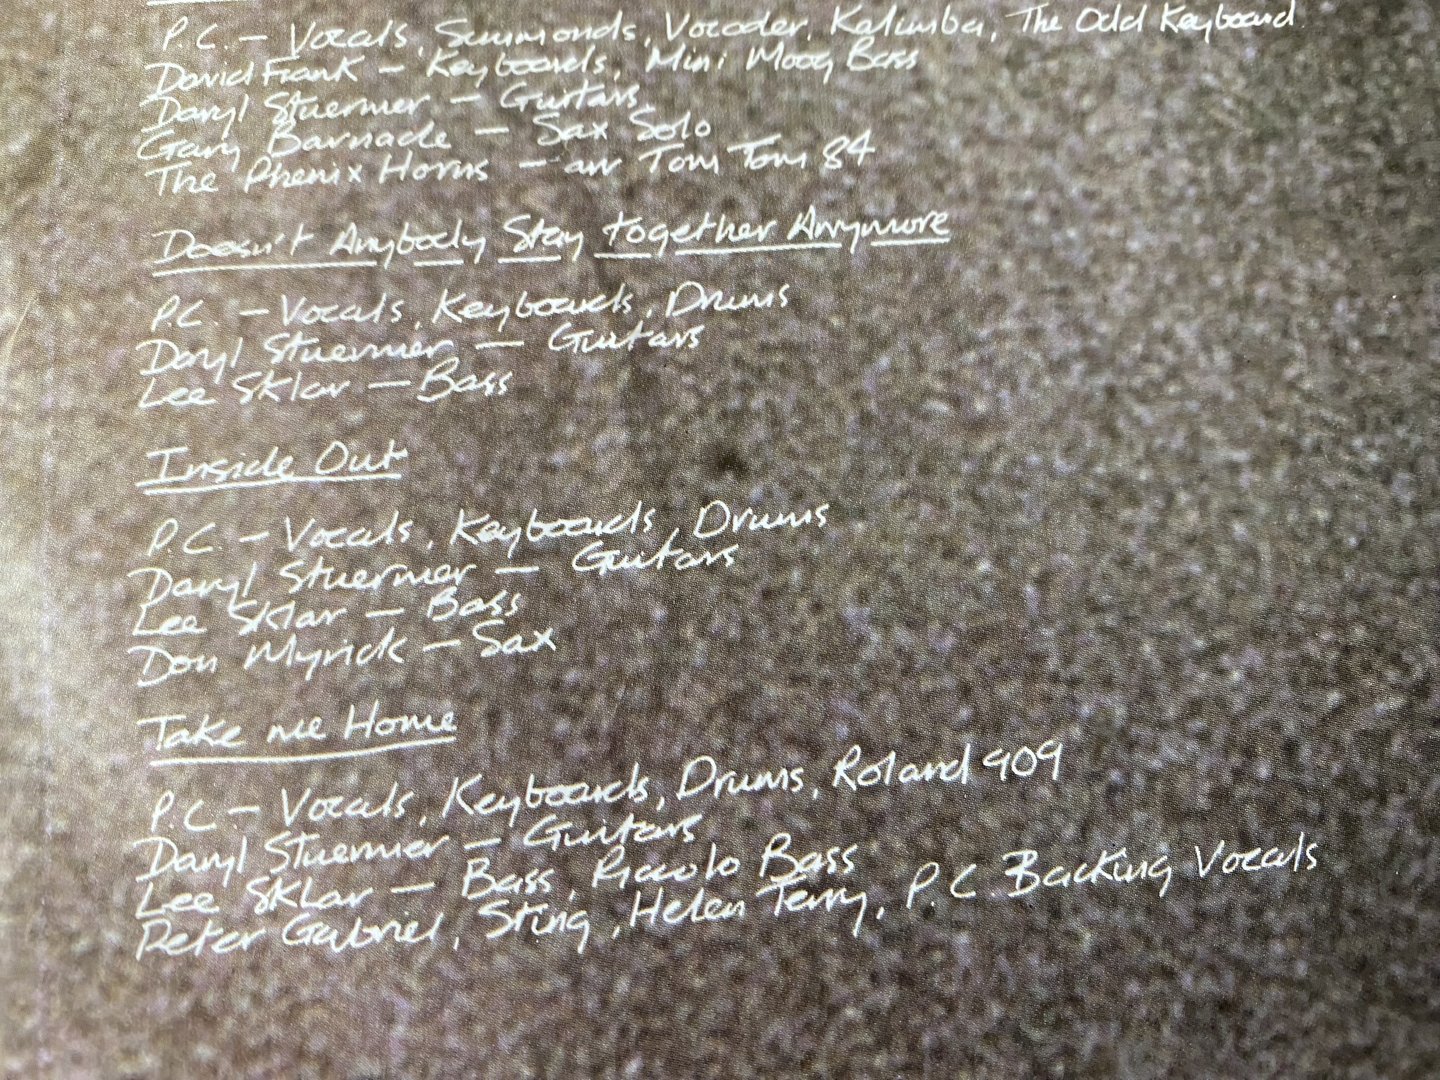 P.C. – Vocals, Simmonds, Vocoder, Kalimba, The Odd Keyboard
David Frank – Keyboards, Mini Moog Bass
Daryl Stuermer – Guitars,
Gary Barnacle – Sax Solo
The Phenix Horns – arr Tom Tom 84
Doesn't Anybody Stay Together Anymore
P.C. – Vocals, Keyboards, Drums
Daryl Stuermer – Guitars
Lee Sklar – Bass
Inside Out
P.C. – Vocals, Keyboards, Drums
Daryl Stuermer – Guitars
Lee Sklar – Bass
Don Myrick – Sax
Take me Home
P.C – Vocals, Keyboards, Drums, Roland 909
Daryl Stuermer – Guitars
Lee Sklar – Bass, Piccolo Bass
Peter Gabriel, Sting, Helen Terry, P.C. Backing Vocals